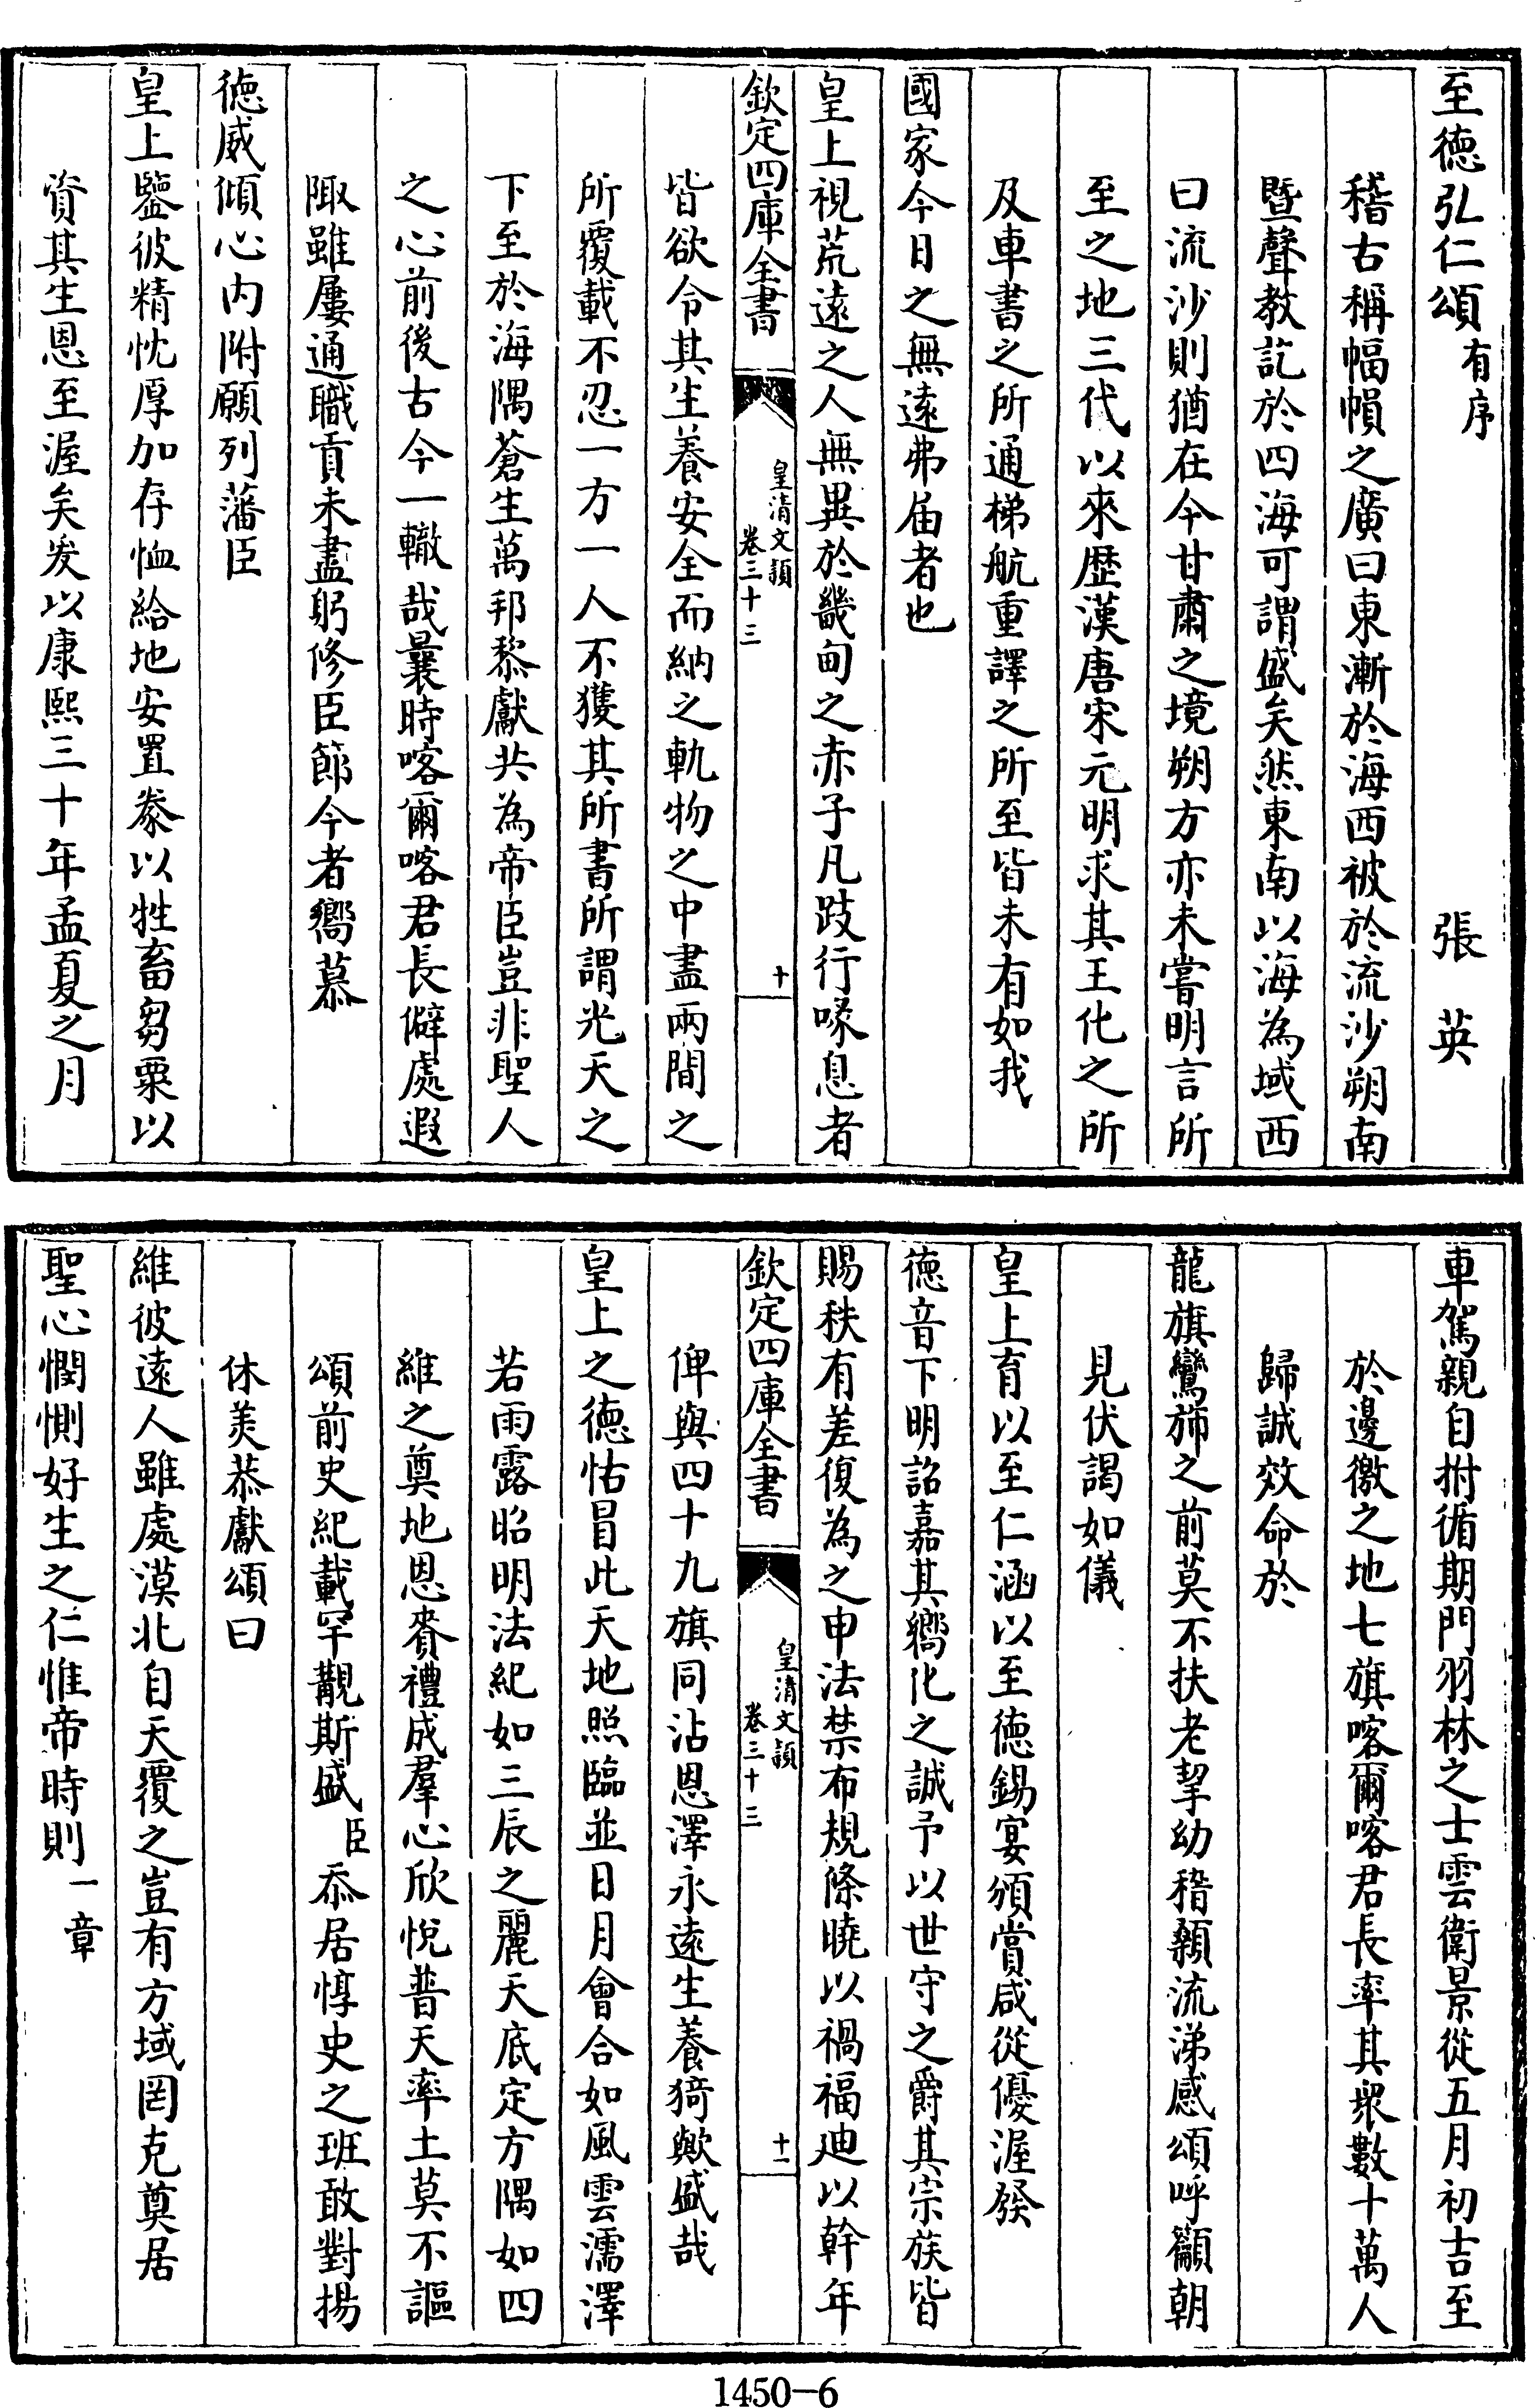 至徳弘仁頌有序　張英
稽古稱幅𢄙之廣曰東漸於海西被於流沙朔南
暨聲教訖於四海可謂盛矣然東南以海為域西
曰流沙則猶在今甘肅之境朔方亦未嘗明言所
至之地三代以來歴漢唐宋元明求其王化之所
及車書之所通梯航重譯之所至皆未有如我
國家今日之無遠弗届者也
皇上視荒遠之人無異於畿甸之赤子凡跂行喙息者
欽定四庫全書　皇清文頴　卷三十三　十
皆欲令其生養安全而納之軌物之中盡兩間之
所覆載不忍一方一人不獲其所書所謂光天之
下至於海隅蒼生萬邦黎獻共為帝臣豈非聖人
之心前後古今一轍哉曩時喀爾喀君長僻處遐
陬雖屢通職貢未盡躬修臣節今者嚮慕
徳威傾心内附願列藩臣
皇上鑒彼精忱厚加存恤給地安置豢以牲畜芻粟以
資其生恩至渥矣爰以康熙三十年孟夏之月
車駕親自拊循期門羽林之士雲衛景從五月初吉至
於邊徼之地七旗喀爾喀君長率其衆數十萬人
歸誠效命於
龍旗鸞斾之前莫不扶老挈幼稽顙流涕感頌呼籲朝
見伏謁如儀
皇上育以至仁涵以至徳錫宴頒賞咸從優渥發
徳音下明詔嘉其嚮化之誠予以世守之爵其宗族皆
賜秩有差復為之申法禁布規條曉以禍福廸以幹年
欽定四庫全書　皇清文頴　卷三十三　十一
俾與四十九旗同沾恩澤永遠生養猗歟盛哉
皇上之徳怙冒此天地照臨並日月會合如風雲濡澤
若雨露昭明法紀如三辰之麗天底定方隅如四
維之奠地恩賚禮成羣心欣悅普天率土莫不謳
頌前史紀載罕覯斯盛臣忝居惇史之班敢對揚
休美恭獻頌曰
維彼遠人雖處漠北自天覆之豈有方域罔克奠居
聖心憫惻好生之仁惟帝時則一章
1450-6